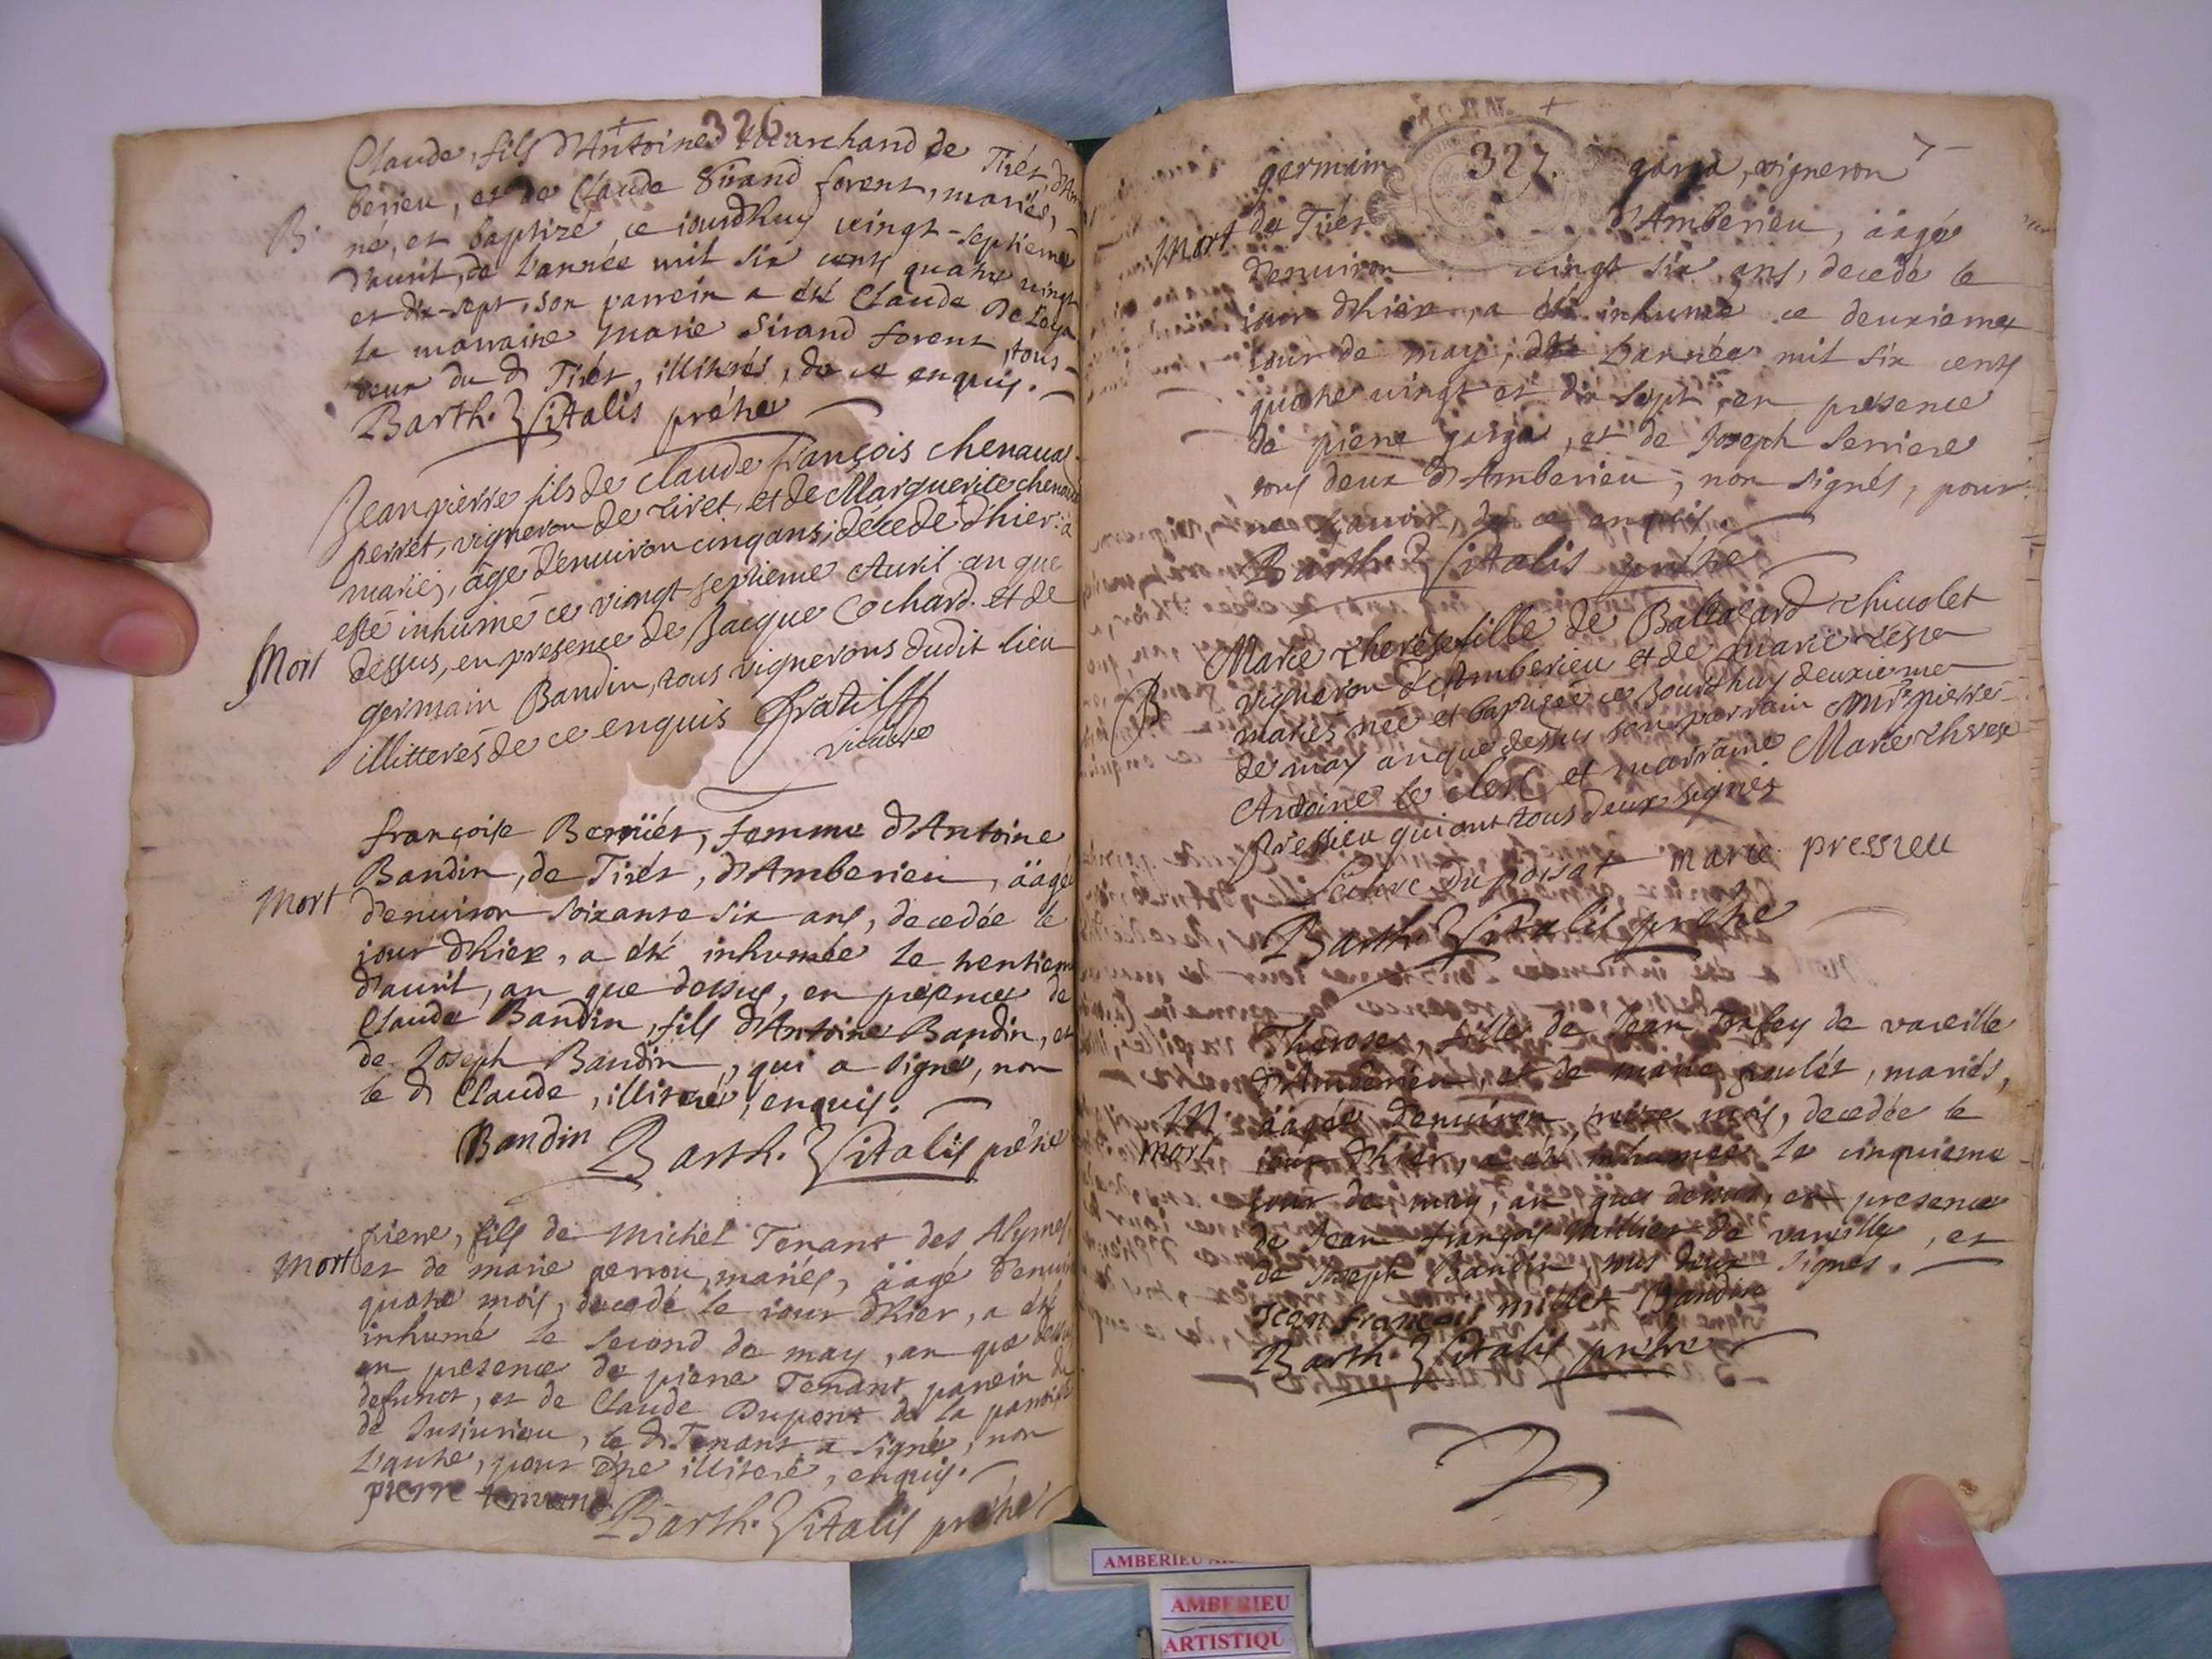 326
Claude, fils d'Antoine Marchand de Tirét, d'Am
berieu, et de Claude Sirand forent, mariés,
B. né, et baptizé ce iourdhuy vingt-septieme
d'auril, de l'année mil six cents quatre vingt
et dix-sept, son parrein a été Claude De Loya
la marraine Marie Sirand forent, tous
deux du d Tirét, illitérés, de ce enquis.
Barth. Vitalis prêtre
Jean pierre fils de Claude françois chenaual
perret, vigneron de tiret, et de Marguerite chenaual
mariés, âgé denuiron cinq ans, décedé d'hier: a
esté inhumé ce vingt-septieme Auril an que
Mort dessus, en presence de Jacque Cochard et de
germain Bandin, tous vignerons dudit lieu
illitterés de ce enquis
vicaire
françoise Berniér, femme d'Antoine
Bandin, de Tirét, d'Amberieu, äagée
Mort d'enuiron soixante six ans, decedée le
iour d'hier, a été inhumée le trentieme
d'auril, an que dessus, en presence de
Claude Bandin, fils d'Antoine Bandin, et
de Joseph Bandin, qui a signé, non
le d Claude, illiteré, enquis.
Bandin Barth. Vitalis prêtre
pierre, fils de Michel Tenant des Alymes
Mort et de marie perrou, mariés, äagé d'enuiron
quatre mois, decedé le iour d'hier, a été
inhumé le second de may, an que dessus
en presence de pierre Tenant, parrein du
defunct, et de Claude Dupont de la parroisse
de Iuiurieu, le d. Tenant a signé, non
l'autre, pour être illiteré, enquis.
pierre tenant
Barth. Vitalis prêtre
327.
germain garça, vigneron
Mort de Tirét d'Amberieu, äagé
denuiron vingt six ans, decedé le
iour d'hier, a été inhumé ce deuxieme
iour de may, de l'année mil six cents
quatre vingt et dix sept, en presence
de pierre garça, et de Joseph Serriere
tous deux d'Amberieu, non signés, pour
ne sçauoir, de ce enquis.
Barth. Vitalis prêtre
Marie therese fille de Baltazard thiuolet
B vigneron d'Amberieu et de marie
mariés née et baptisée ce jourdhuy deuxieme
de may an que dessus son parrain Mre pierre
Antoine le clerc et marraine Marie therese
pressieu qui ont tous deux signés
marie pressieu
Barth. Vitalis prêtre
Therese, fille de Jean Trafey de vareille
d'Amberieu, et de marie goulét, mariés,
Mort äagée denuiron treize mois, decedée le
iour d'hier, a été inhumée le cinquieme
iour de may, an que dessus, en presence
de Jean françois Milliet de vareille, et
de Joseph Bandin, tous deux signés.
Jean françois milliet Bandin
Barth. Vitalis prêtre
AMBERIEU
AMBERIEU
ARTISTIQU